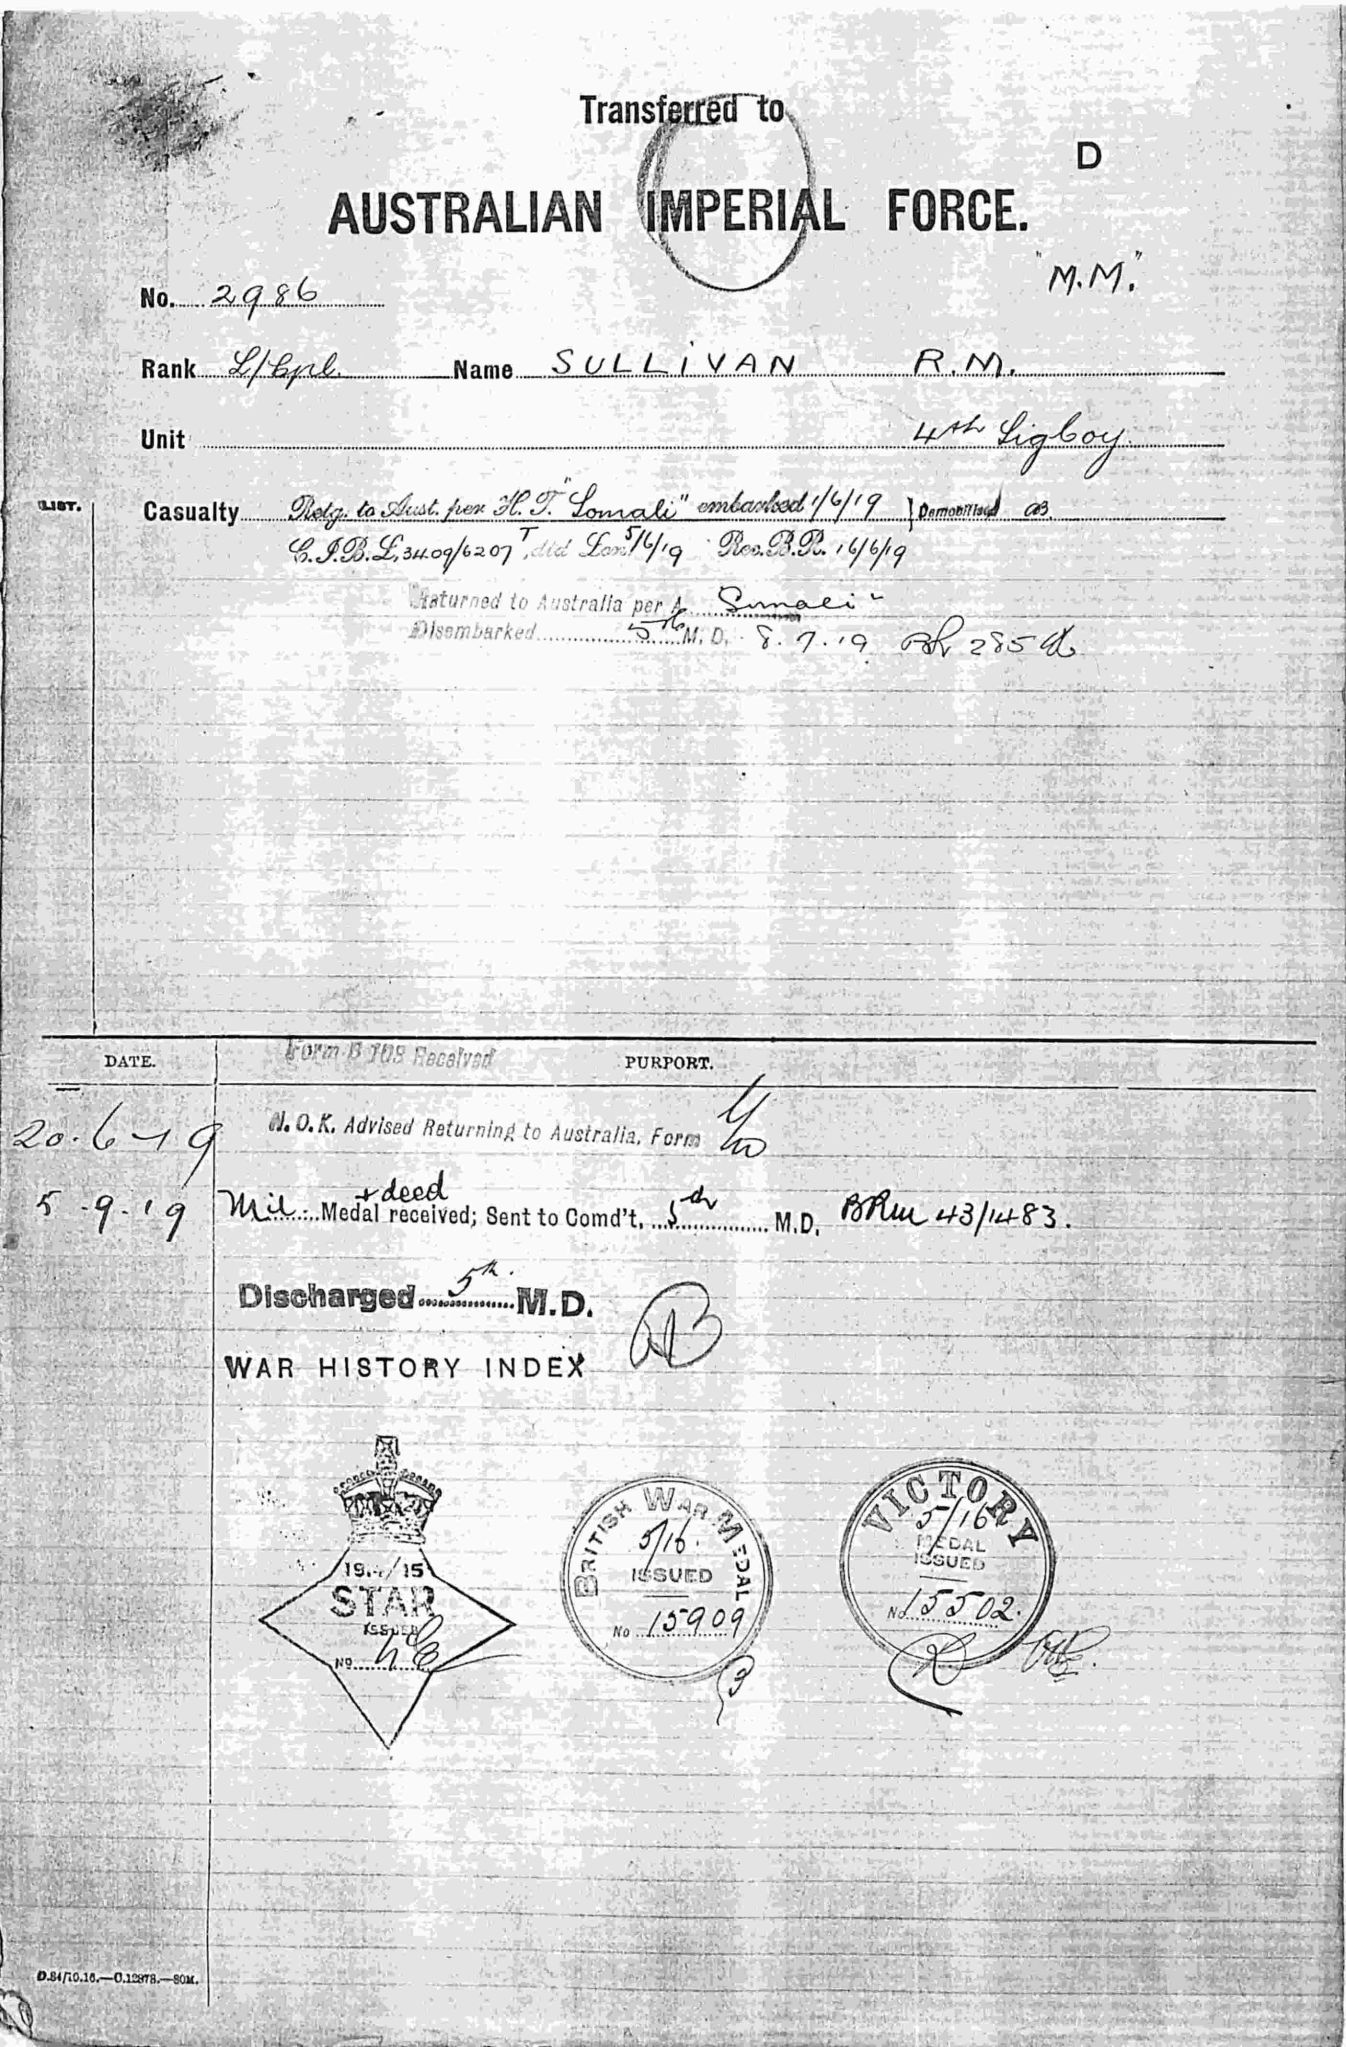 Transferred to
D
AUSTRALIAN IMPERIAL FORCE.
"M.M."
No. 2986
Rank L/Cpl. Name SULLIVAN R.M.
Unit 4th Sig Coy.
LIST.
Casualty Retg. to Aust. per H.T. "Somali" embarked 1/6/19 Demobilised
C.I.B.L. 3409/6207 T, dtd Lon. 5/6/19 Rec. B.R. 16/6/19
Returned to Australia per A Somali"
Disembarked 5th M.D. 8.7.19 285
Form B 103 Received
DATE. PURPORT.
20.6-19 N.O.K. Advised Returning to Australia, Form
5.9.19 Mil. Medal + deed received; Sent to Comd't, 5th M.D. BRM 43/1483.
Discharged 5th. M.D.
WAR HISTORY INDEX
1914/15
STAR
ISSUED
No
BRITISH WAR MEDAL
5/16.
ISSUED
No 15909
VICTORY
5/16
MEDAL
ISSUED
No 15502.
D.84/10.16.—C.12878.—50M.